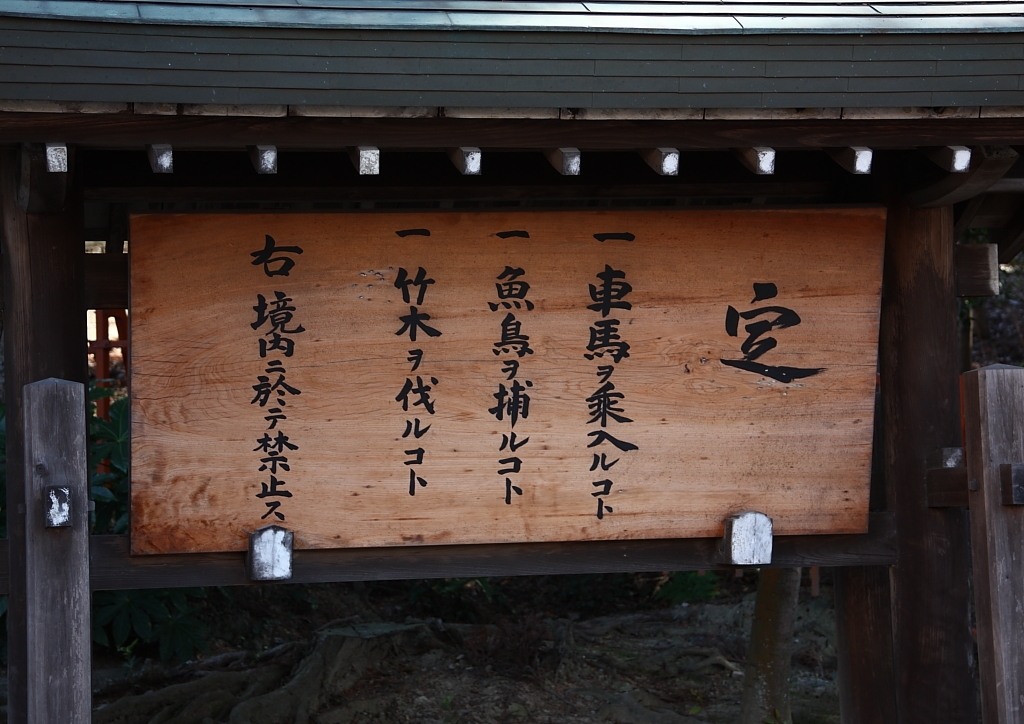 定
一 車馬ヲ乗入ルコト
一 魚鳥ヲ捕ルコト
一 竹木ヲ伐ルコト
右境内ニ於テ禁止ス